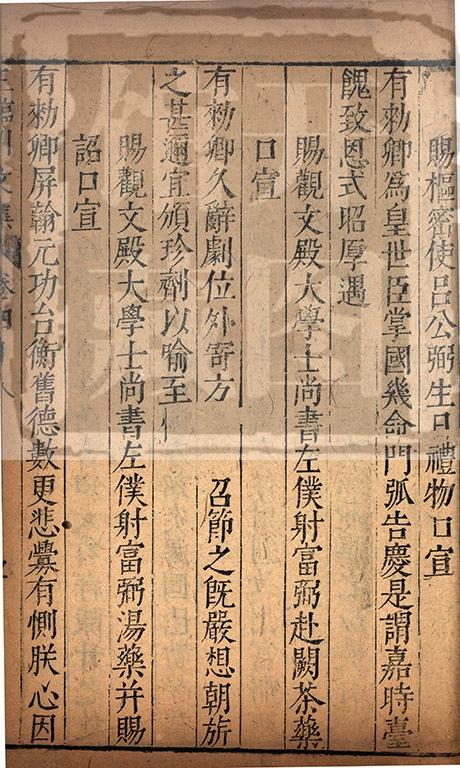 賜樞密使呂公弼生日禮物口宣
有勑卿爲皇世臣掌國幾命門弧告慶是謂嘉時臺
餽致恩式昭厚遇
賜觀文殿大學士尚書左僕射富弼赴闕茶藥
口宣
有勑卿久辭劇位外寄方
召節之旣嚴想朝旂
之甚邇宜頒珍劑以喻至
賜觀文殿大學士尚書左僕射富弼湯藥幷賜
詔口宣
有勑卿屏翰元功台衡舊德數更悲釁有惻朕心因